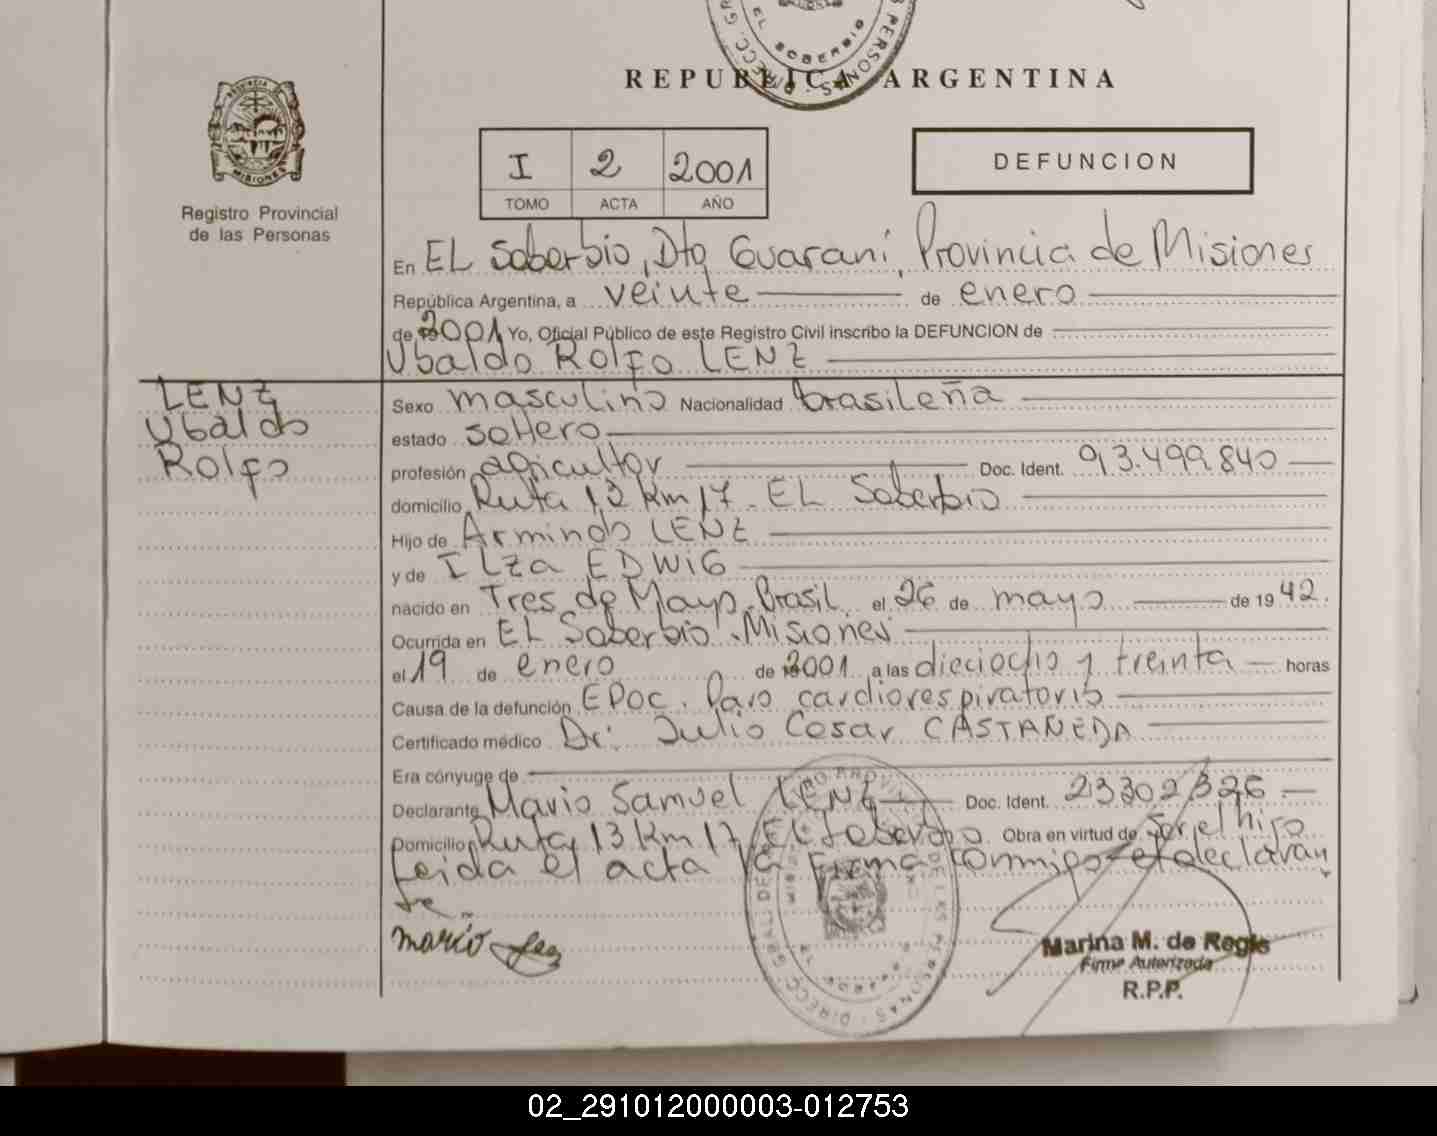 EL SOBERBIO
REPUBLICA ARGENTINA
PROVINCIA DE
MISIONES
Registro Provincial
de las Personas
I 2 2001
TOMO ACTA AÑO
DEFUNCION
En EL Soberbio, Dto Guaraní, Provincia de Misiones
República Argentina, a veinte de enero
de 2001 Yo, Oficial Público de este Registro Civil inscribo la DEFUNCION de
Ubaldo Rolfo LENZ
LENZ
Ubaldo
Rolfo
Sexo masculino Nacionalidad brasileña
estado soltero
profesión agricultor Doc. Ident. 93.499.840
domicilio Ruta 13 Km 17. EL Soberbio
Hijo de Armindo LENZ
y de ILza EDWIG
nacido en Tres de Mayo. Brasil el 26 de mayo de 19 42.
Ocurrida en EL Soberbio. Misiones
el 19 de enero de 2001 a las dieciocho y treinta horas
Causa de la defunción EPOC. Paro cardiorespiratorio
Certificado médico Dr. Julio Cesar CASTAÑEDA
Era cónyuge de
Declarante Mario Samuel LENZ Doc. Ident. 23302326
Domicilio Ruta 13 Km 17 EL Soberbio Obra en virtud de ser el hijo
Leida el acta la Firma conmigo el declaran
te.
mario
Marina M. de Regis
Firma Autorizada
R.P.P.
02_291012000003-012753